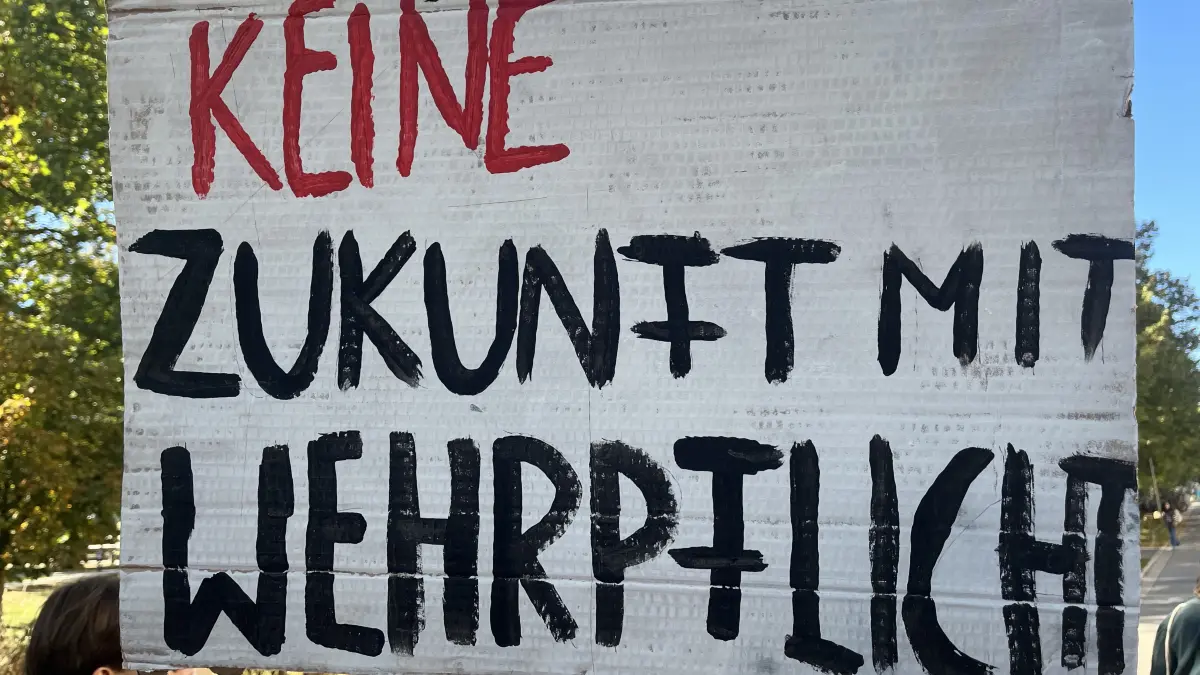 KEINE
ZUKUNFT MIT
WEHRPFLICHT